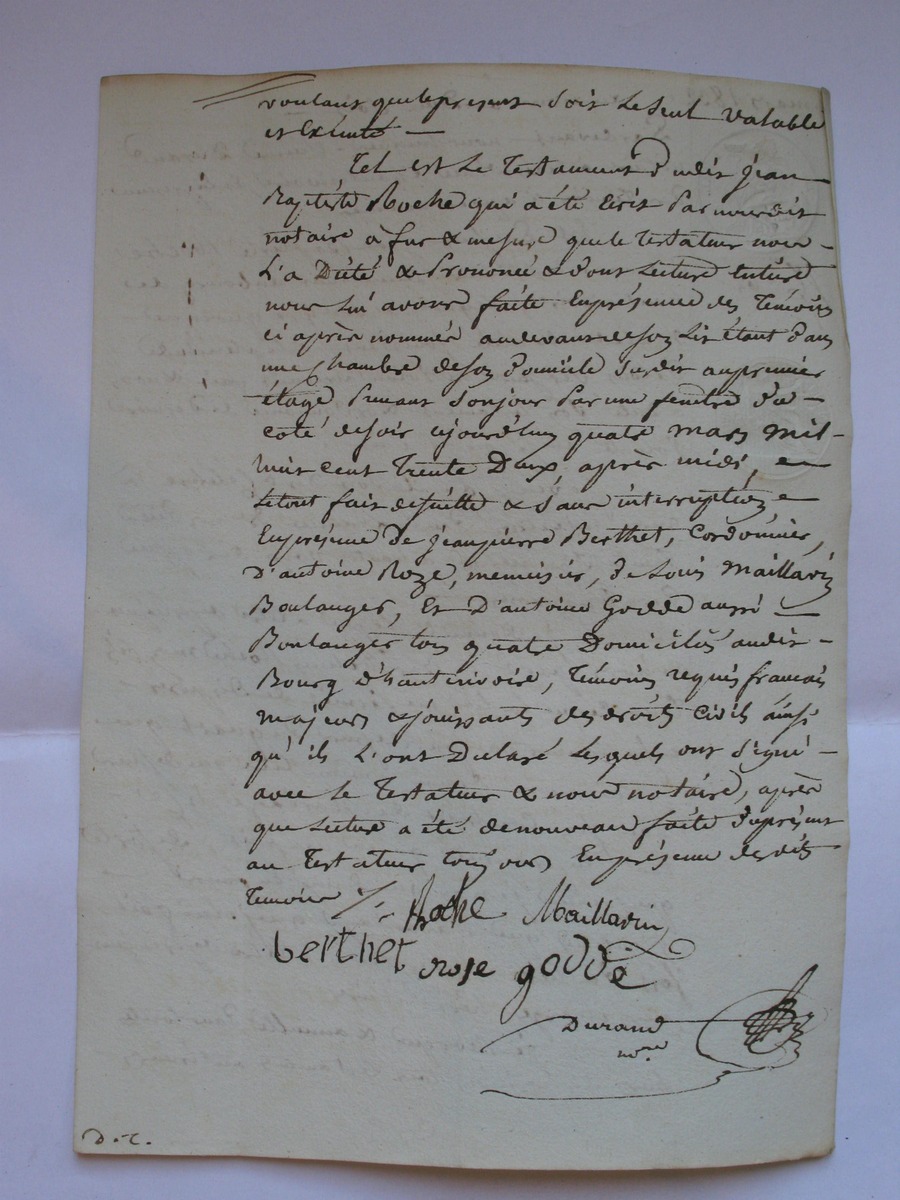 voulant que le present soit le seul valable
et Exécuté —
Tel est Le Testament dudit jean
Baptiste Roche qui a été Ecrit Par nous dit
notaire à fur & mesure que le Testateur nous –
L'a Dicté & Prononcé & dont Lecture Entière
nous Lui avons faite En présence des Témoins
ci après nommés audevant de son Lit étant dans
une Chambre de son domicile susdit au premier
étage Prenant son jour Par une fenêtre du –
coté de soir aujourd'hui quatre mars mil –
huit cent Trente Deux, après midi, —
Le tout fait de suitte & sans interruption —
En présence de jean pierre Berthet, Cordonnier,
D'antoine Roze, menuisier, de Louis Maillavin
Boulanger, Et D'antoine Godde aussi —
Boulanger tous quatre Domiciliés audit –
Bourg d'hauterivoire, Témoins requis francais
majeurs & jouissants des droits Civils ainsi
qu'ils L'ont Déclaré Lesquels ont signé –
avec Le Testateur & nous notaire, après
que Lecture a été de nouveau faite du présent
au Testateur toujours En présence desdits
Témoins /.
Roche Maillavin
berthet rose godde
Durand
nore
D.C.